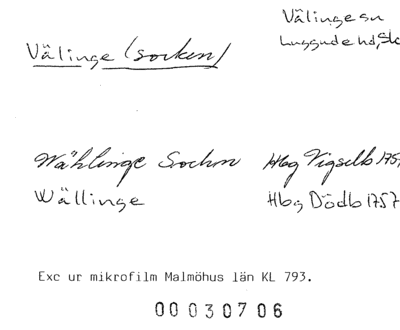 Välinge sn
Luggude hd, Sk
Välinge (socken)
Wählinge Sochn Hbg Vigselb 175
Wällinge Hbg Dödb 1757
Exc ur mikrofilm Malmöhus län KL 793.
00030706